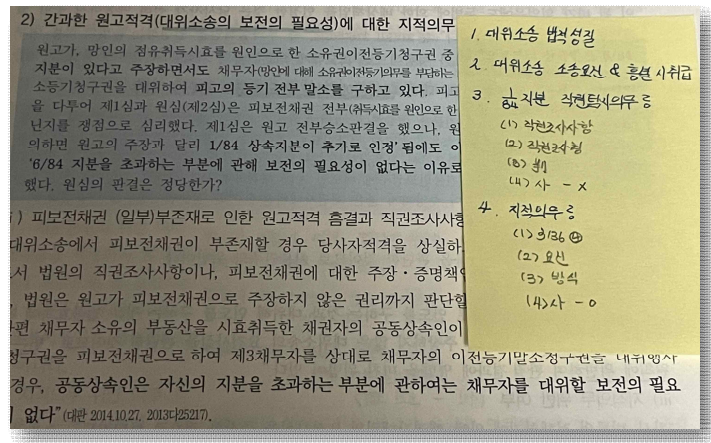 2) 간과한 원고적격(대위소송의 보전의 필요성)에 대한 지적의무
원고가, 망인의 점유취득시효를 원인으로 한 소유권이전등기청구권 중
지분이 있다고 주장하면서도 채무자(망인에 대해 소유권이전등기의무를 부담하는
소등기청구권을 대위하여 피고의 등기 전부 말소를 구하고 있다. 피고
을 다투어 제1심과 원심(제2심)은 피보전채권 전부(취득시효를 원인으로 한
닌지를 쟁점으로 심리했다. 제1심은 원고 전부승소판결을 했으나, 원
의하면 원고의 주장과 달리 1/84 상속지분이 추가로 인정’됨에도 이
‘6/84 지분을 초과하는 부분에 관해 보전의 필요성이 없다는 이유로
했다. 원심의 판결은 정당한가?
) 피보전채권 (일부)부존재로 인한 원고적격 흠결과 직권조사사항
대위소송에서 피보전채권이 부존재할 경우 당사자적격을 상실하
서 법원의 직권조사사항이나, 피보전채권에 대한 주장·증명책
법원은 원고가 피보전채권으로 주장하지 않은 권리까지 판단할
편 채무자 소유의 부동산을 시효취득한 채권자의 공동상속인이
청구권을 피보전채권으로 하여 제3채무자를 상대로 채무자의 이전등기말소청구권을 대위행사
경우, 공동상속인은 자신의 지분을 초과하는 부분에 관하여는 채무자를 대위할 보전의 필요
없다” (대판 2014.10.27, 2013다25217).
1. 대위소송 법적성질
2. 대위소송 소송요건 & 흠결 시 취급
3. 1/84 지분 직권탐지의무 등
(1) 직권조사사항
(2) 직권조사형
(3) 判
(4) 사 - X
4. 지적의무 등
(1) 의136 ④
(2) 요건
(3) 방식
(4) 사 - O